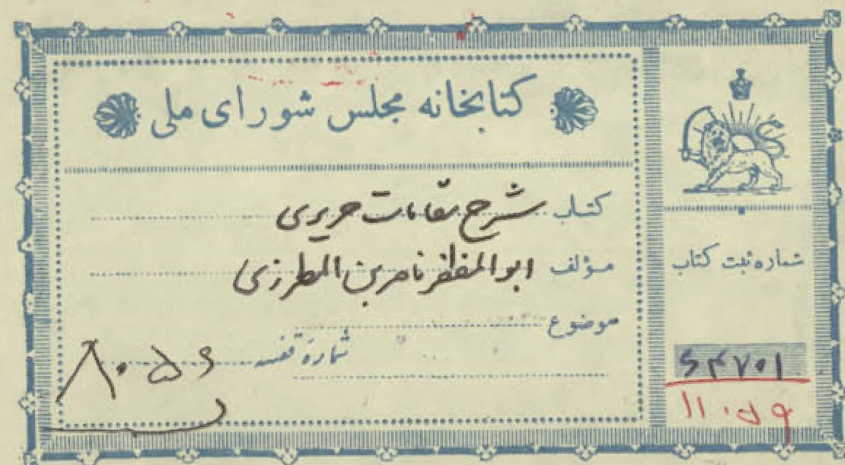 کتابخانه مجلس شورای ملی
کتاب شرح مقامات حریری
مؤلف ابوالمظفر ناصر بن المطرزی
موضوع
شماره قفسه ۸۰۵۶
شماره ثبت کتاب
۶۴۷۰۱
۱۱۰۵۹